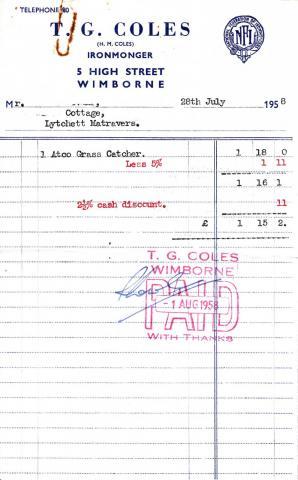 TELEPHONE 80
T. G. COLES
(H. M. COLES)
IRONMONGER
5 HIGH STREET
WIMBORNE
NFI
Mr. 28th July 1958
Cottage,
Lytchett Matravers.
1 Atco Grass Catcher. 1 18 0
Less 5% 1 11
1 16 1
2½% cash discount. 11
£ 1 15 2.
T. G. COLES
WIMBORNE
PAID
-1 AUG 1958
WITH THANKS